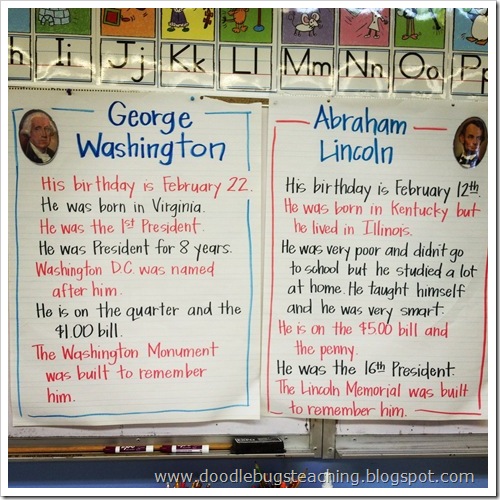 h Ii Jj Kk Ll Mm Nn Oo P
George
Washington
His birthday is February 22.
He was born in Virginia.
He was the 1st President.
He was President for 8 years.
Washington D.C. was named
after him.
He is on the quarter and the
$1.00 bill.
The Washington Monument
was built to remember
him.
Abraham
Lincoln
His birthday is February 12th.
He was born in Kentucky but
he lived in Illinois.
He was very poor and didn't go
to school but he studied a lot
at home. He taught himself
and he was very smart.
He is on the $5.00 bill and
the penny.
He was the 16th President.
The Lincoln Memorial was built
to remember him.
www.doodlebugsteaching.blogspot.com